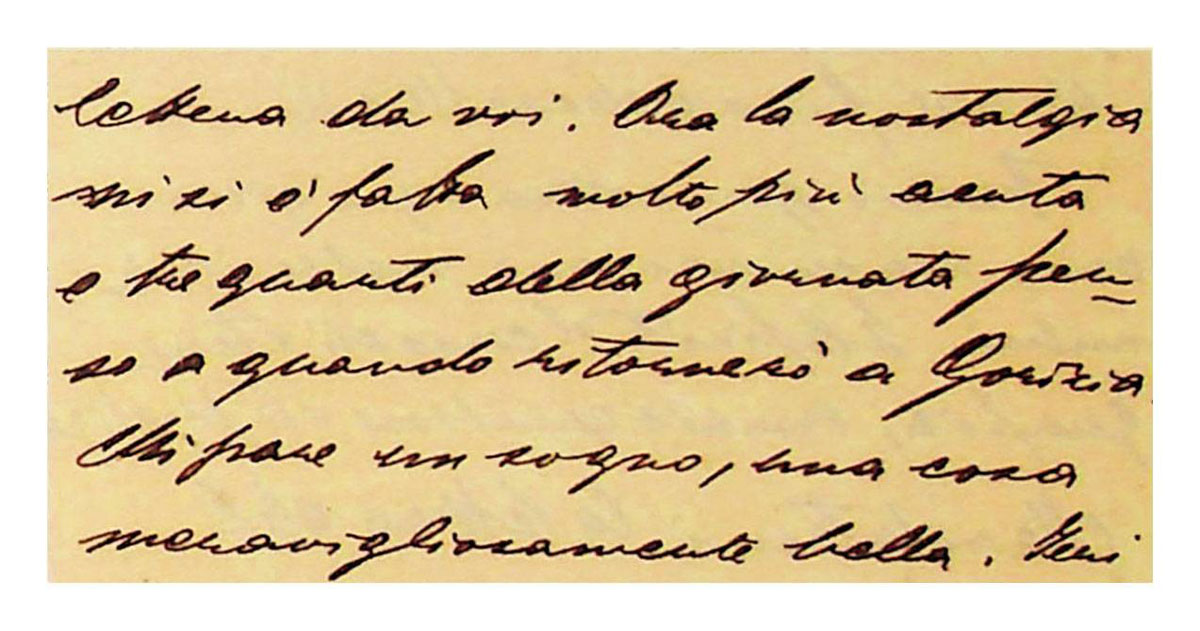 lettera da voi. Ora la nostalgia
mi si è fatta molto più acuta
e tre quarti della giornata pen-
so a quando ritornerò a Gorizia
Mi pare un sogno, una cosa
meravigliosamente bella. Ieri